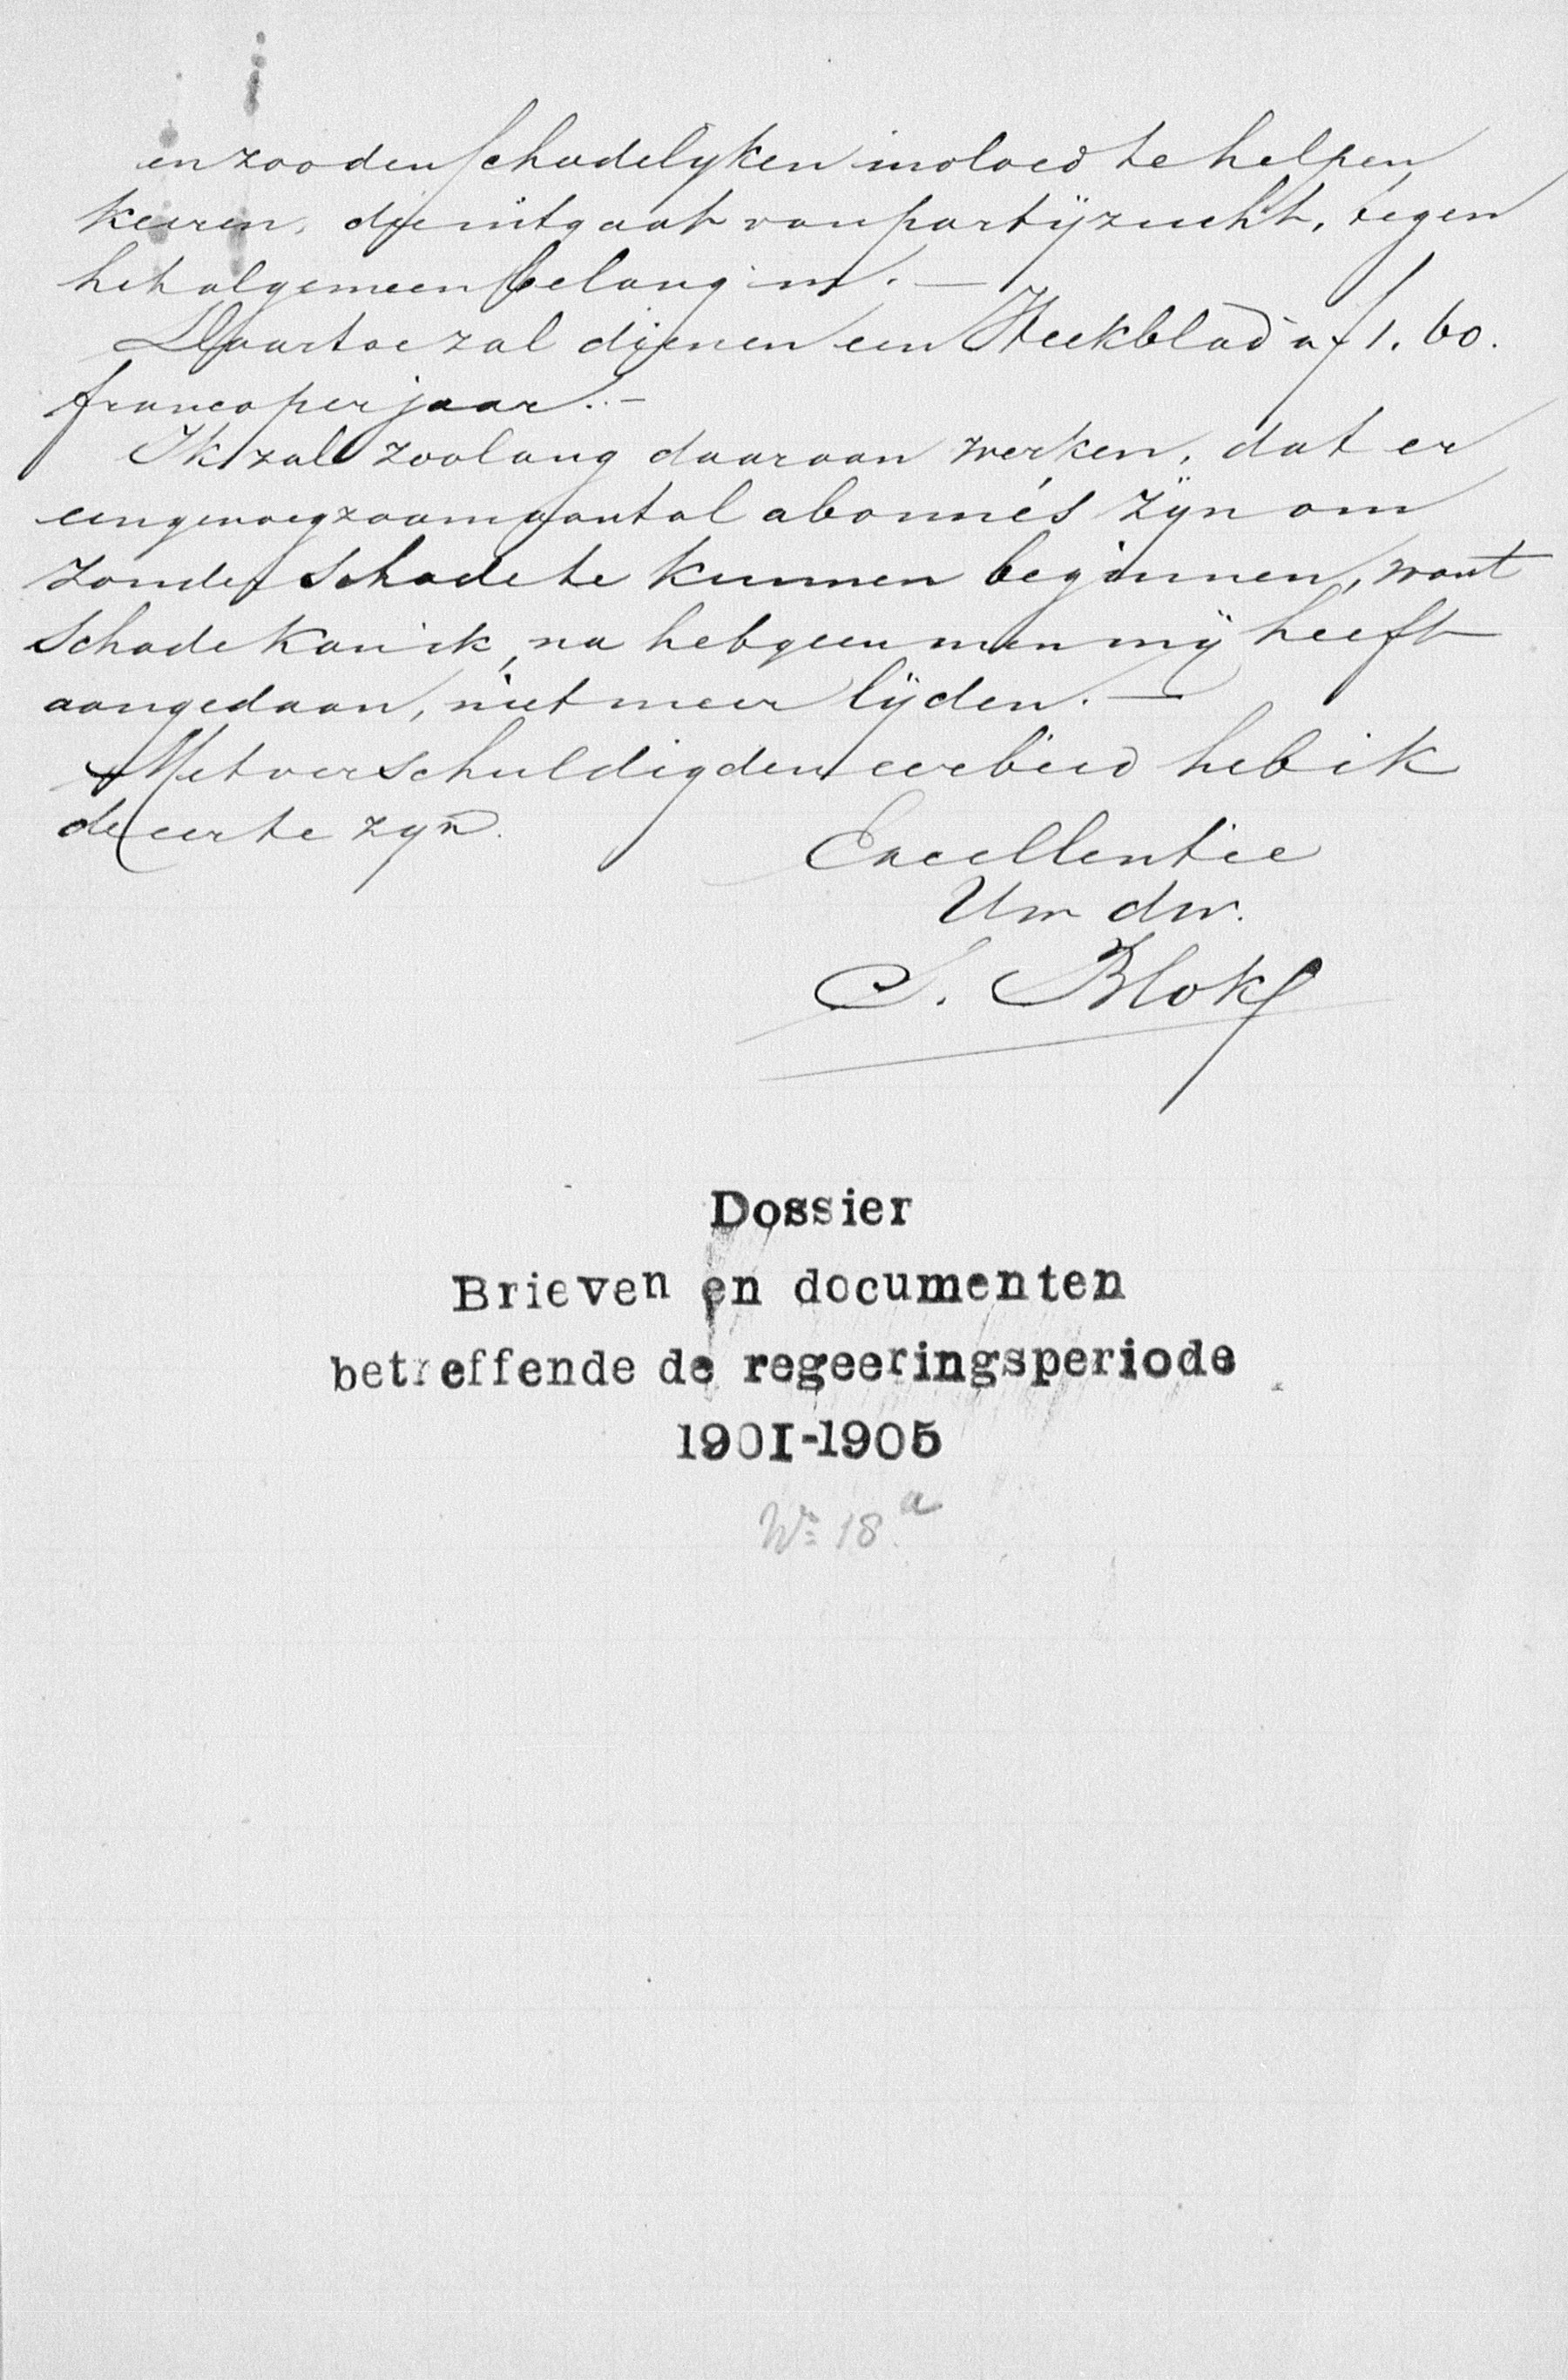 en zoo den schadelyken invloed te helpen
keeren, die uitgaat van partijzucht, tegen
het algemeen belang in. —
Daartoe zal dienen een Weekblad à f 1.60.
franco per jaar. —
Ik zal zoolang daaraan werken, dat er
een genoegzaam aantal abonnés zijn om
zonder schade te kunnen beginnen, want
schade kan ik, na hetgeen men mij heeft
aangedaan, niet meer lijden. —
Met verschuldigden eerbied heb ik
de eer te zyn.
Excellentie
Uw dw.
S. Blok
Dossier
Brieven en documenten
betreffende de regeeringsperiode
1901-1905
No 18a